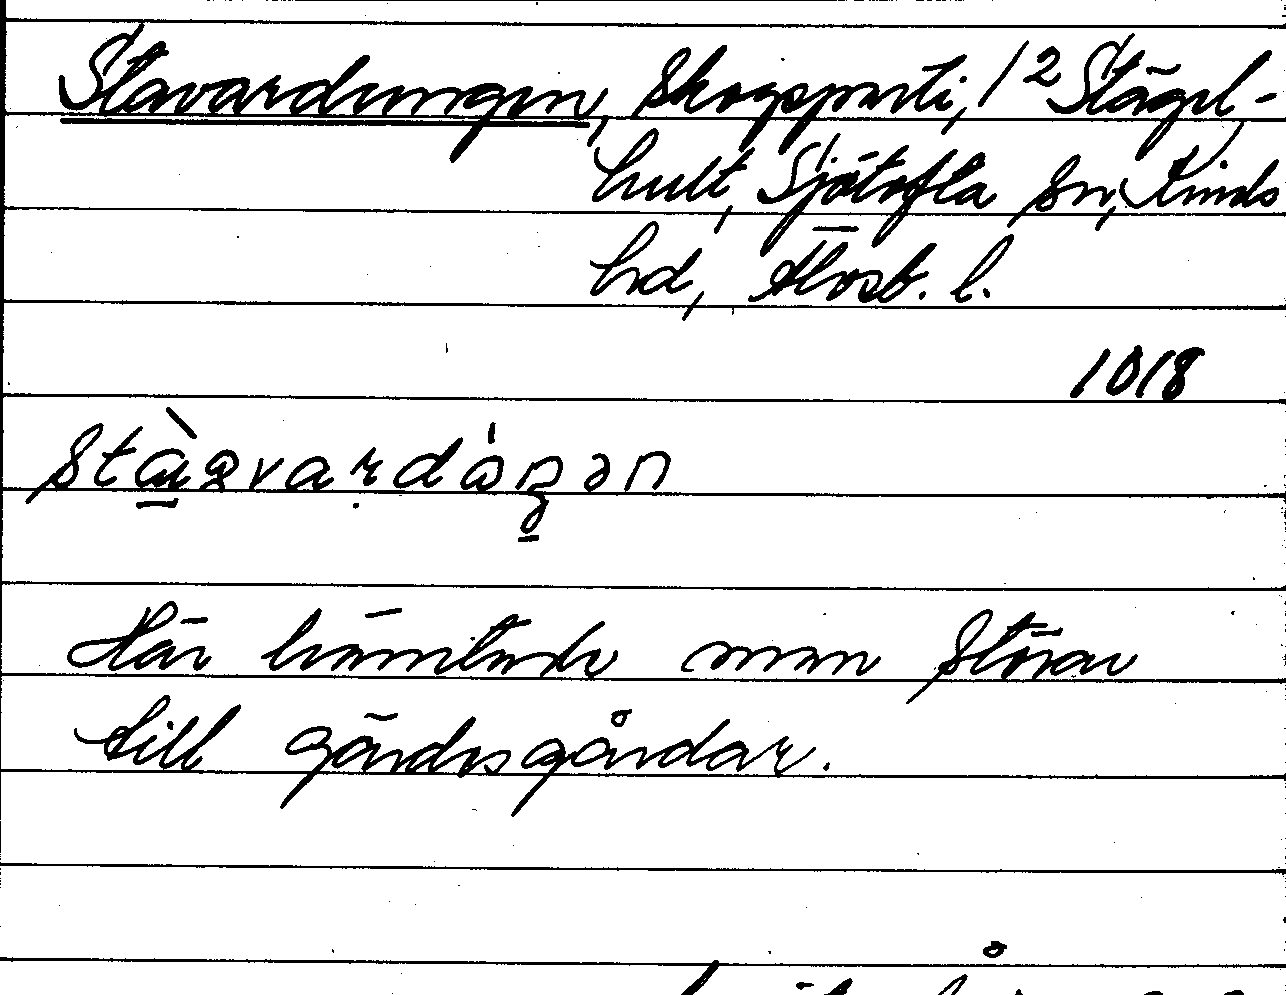 Stavardungen, skogsparti, 1 2 Stägel-
hult, Sjötofta sn, Kinds
hd, Älvsb. l.
1018
Här hämtade man störar
till gärdesgårdar.